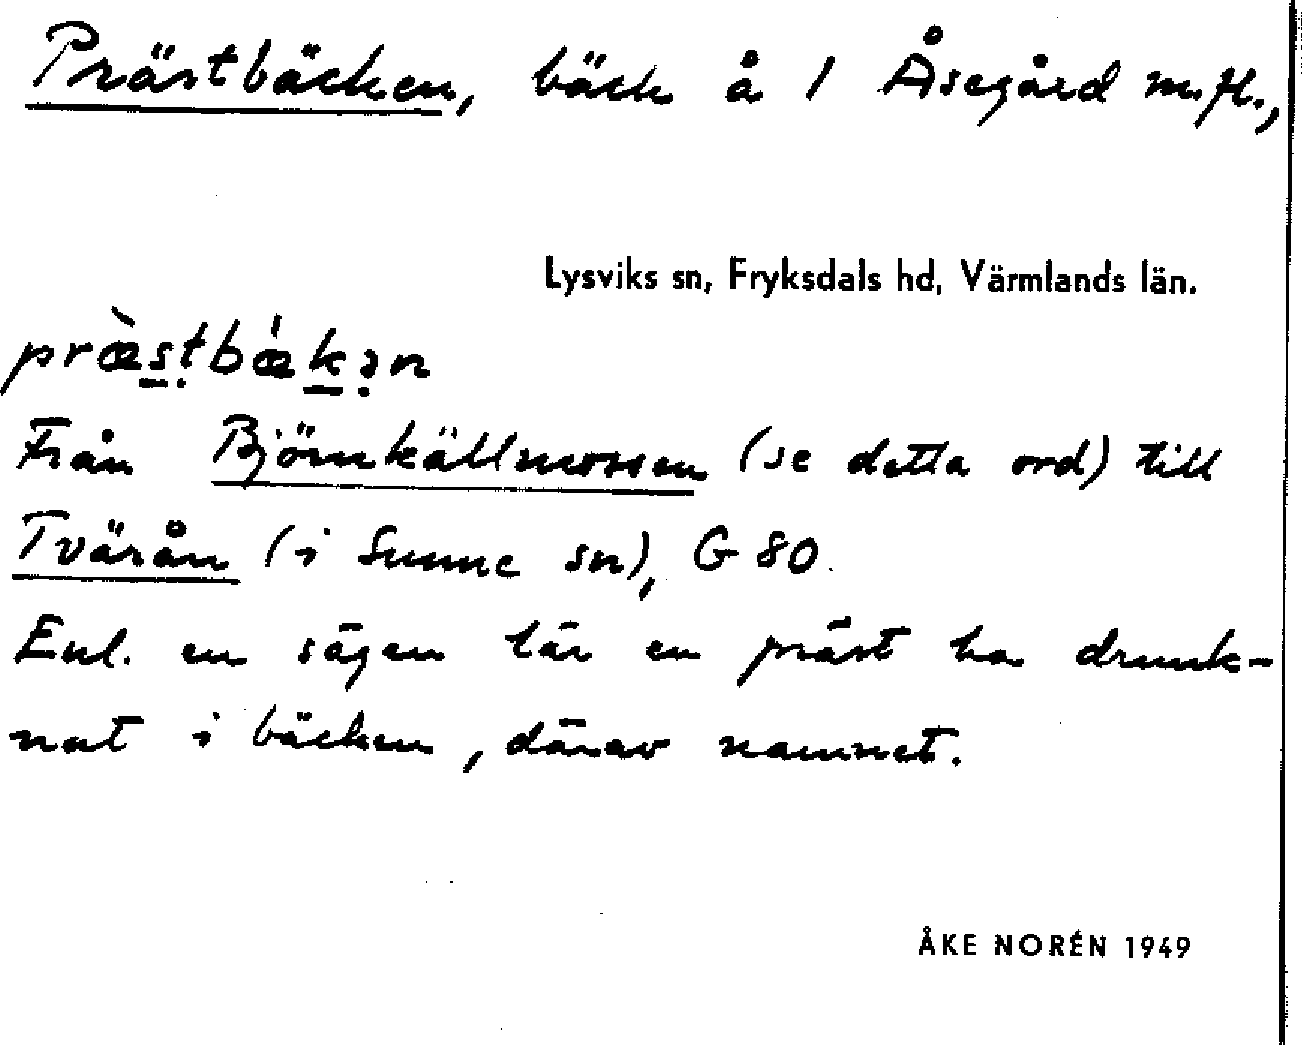 Prästbäcken, bäck å 1 Åsegård m.fl.,
Lysviks sn, Fryksdals hd, Värmlands län.
præ̀s̠ṭbǽk̠ə̣n
Från Björnkällmossen (se detta ord) till
Tvärån (i Sunne sn), G 80.
Enl. en sägen lär en präst ha drunk-
nat i bäcken, därav namnet.
ÅKE NORÉN 1949